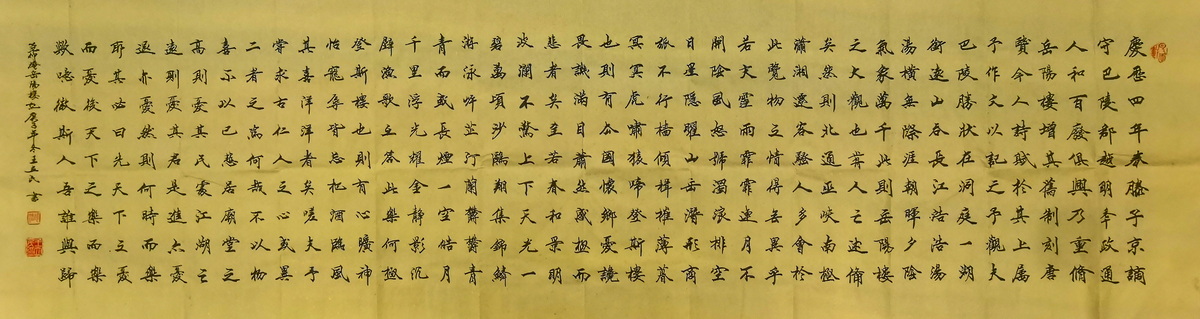 慶歷四年春滕子京謫
守巴陵郡越明年政通
人和百廢俱興乃重脩
岳陽樓增其舊制刻唐
賢今人詩賦於其上屬
予作文以記之予觀夫
巴陵勝狀在洞庭一湖
銜遠山吞長江浩浩湯
湯橫無際涯朝暉夕陰
氣象萬千此則岳陽樓
之大觀也前人之述備
矣然則北通巫峽南極
瀟湘遷客騷人多會於
此覽物之情得無異乎
若夫霪雨霏霏連月不
開陰風怒號濁浪排空
日星隱曜山岳潛形商
旅不行檣傾楫摧薄暮
冥冥虎嘯猿啼登斯樓
也則有去國懷鄉憂讒
畏譏滿目蕭然感極而
悲者矣至若春和景明
波瀾不驚上下天光一
碧萬頃沙鷗翔集錦鱗
游泳岸芷汀蘭鬱鬱青
青而或長煙一空皓月
千里浮光耀金靜影沉
璧漁歌互答此樂何極
登斯樓也則有心曠神
怡寵辱皆忘把酒臨風
其喜洋洋者矣嗟夫予
嘗求古仁人之心或異
二者之為何哉不以物
喜不以己悲居廟堂之
高則憂其民處江湖之
遠則憂其君是進亦憂
退亦憂然則何時而樂
耶其必曰先天下之憂
而憂後天下之樂而樂
歟噫微斯人吾誰與歸
范仲淹岳陽樓記庚子年冬王玉民書